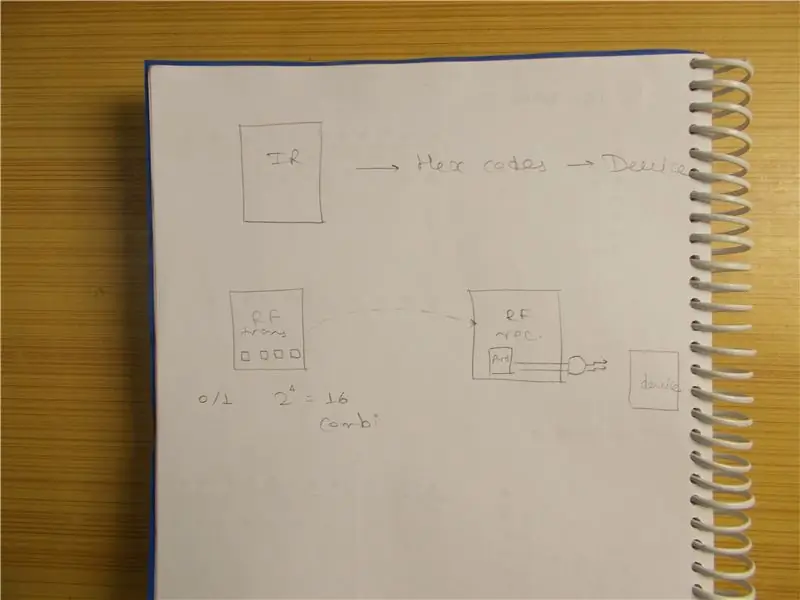 IR → Hex codes → Device
RF
trans
RF
rec.
Ard
device
0/1 2⁴ = 16
combi